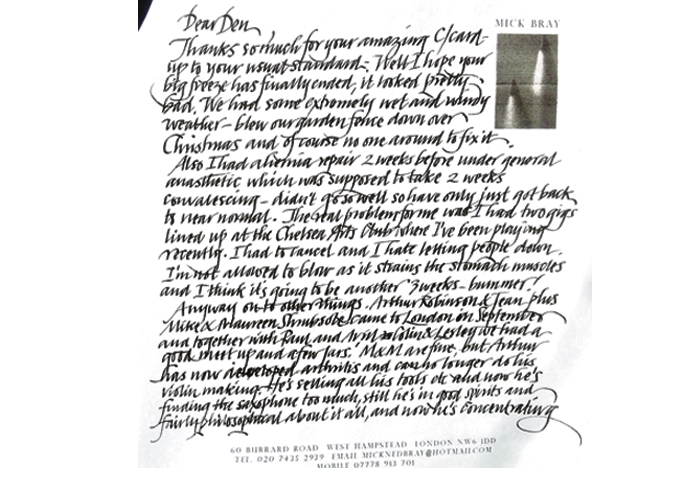 MICK BRAY
Dear Den,
Thanks so much for your amazing C/card-
up to your usual standard. Well I hope your
big freeze has finally ended, it looked pretty
bad. We had some extremely wet and windy
weather - blew our garden fence down over
Christmas and of course no one around to fix it.
Also I had a hernia repair 2 weeks before under general
anasthetic which was supposed to take 2 weeks
convalescing - didn't go so well so have only just got back
to near normal. The real problem for me was I had two gigs
lined up at the Chelsea Arts Club where I've been playing
recently. I had to cancel and I hate letting people down.
I'm not allowed to blow as it strains the stomach muscles
and I think it's going to be another 3 weeks - bummer!
Anyway on to other things. Arthur Robinson & Jean plus
Mike & Maureen Shrubsole came to London in September
and together with Paul and Colin & Lesley we had a
good meet up and a few jars. M&M are fine, but Arthur
has now developed arthritis and can no longer do his
violin making. He's selling all his tools etc and now he's
finding the saxophone too much, still he's in good spirits and
fairly philosophical about it all, and now he's concentrating
60 BURRARD ROAD WEST HAMPSTEAD LONDON NW6 1DD
TEL. 020 7435 2939 EMAIL MICKNEDBRAY@HOTMAIL.COM
MOBILE 07778 913 701